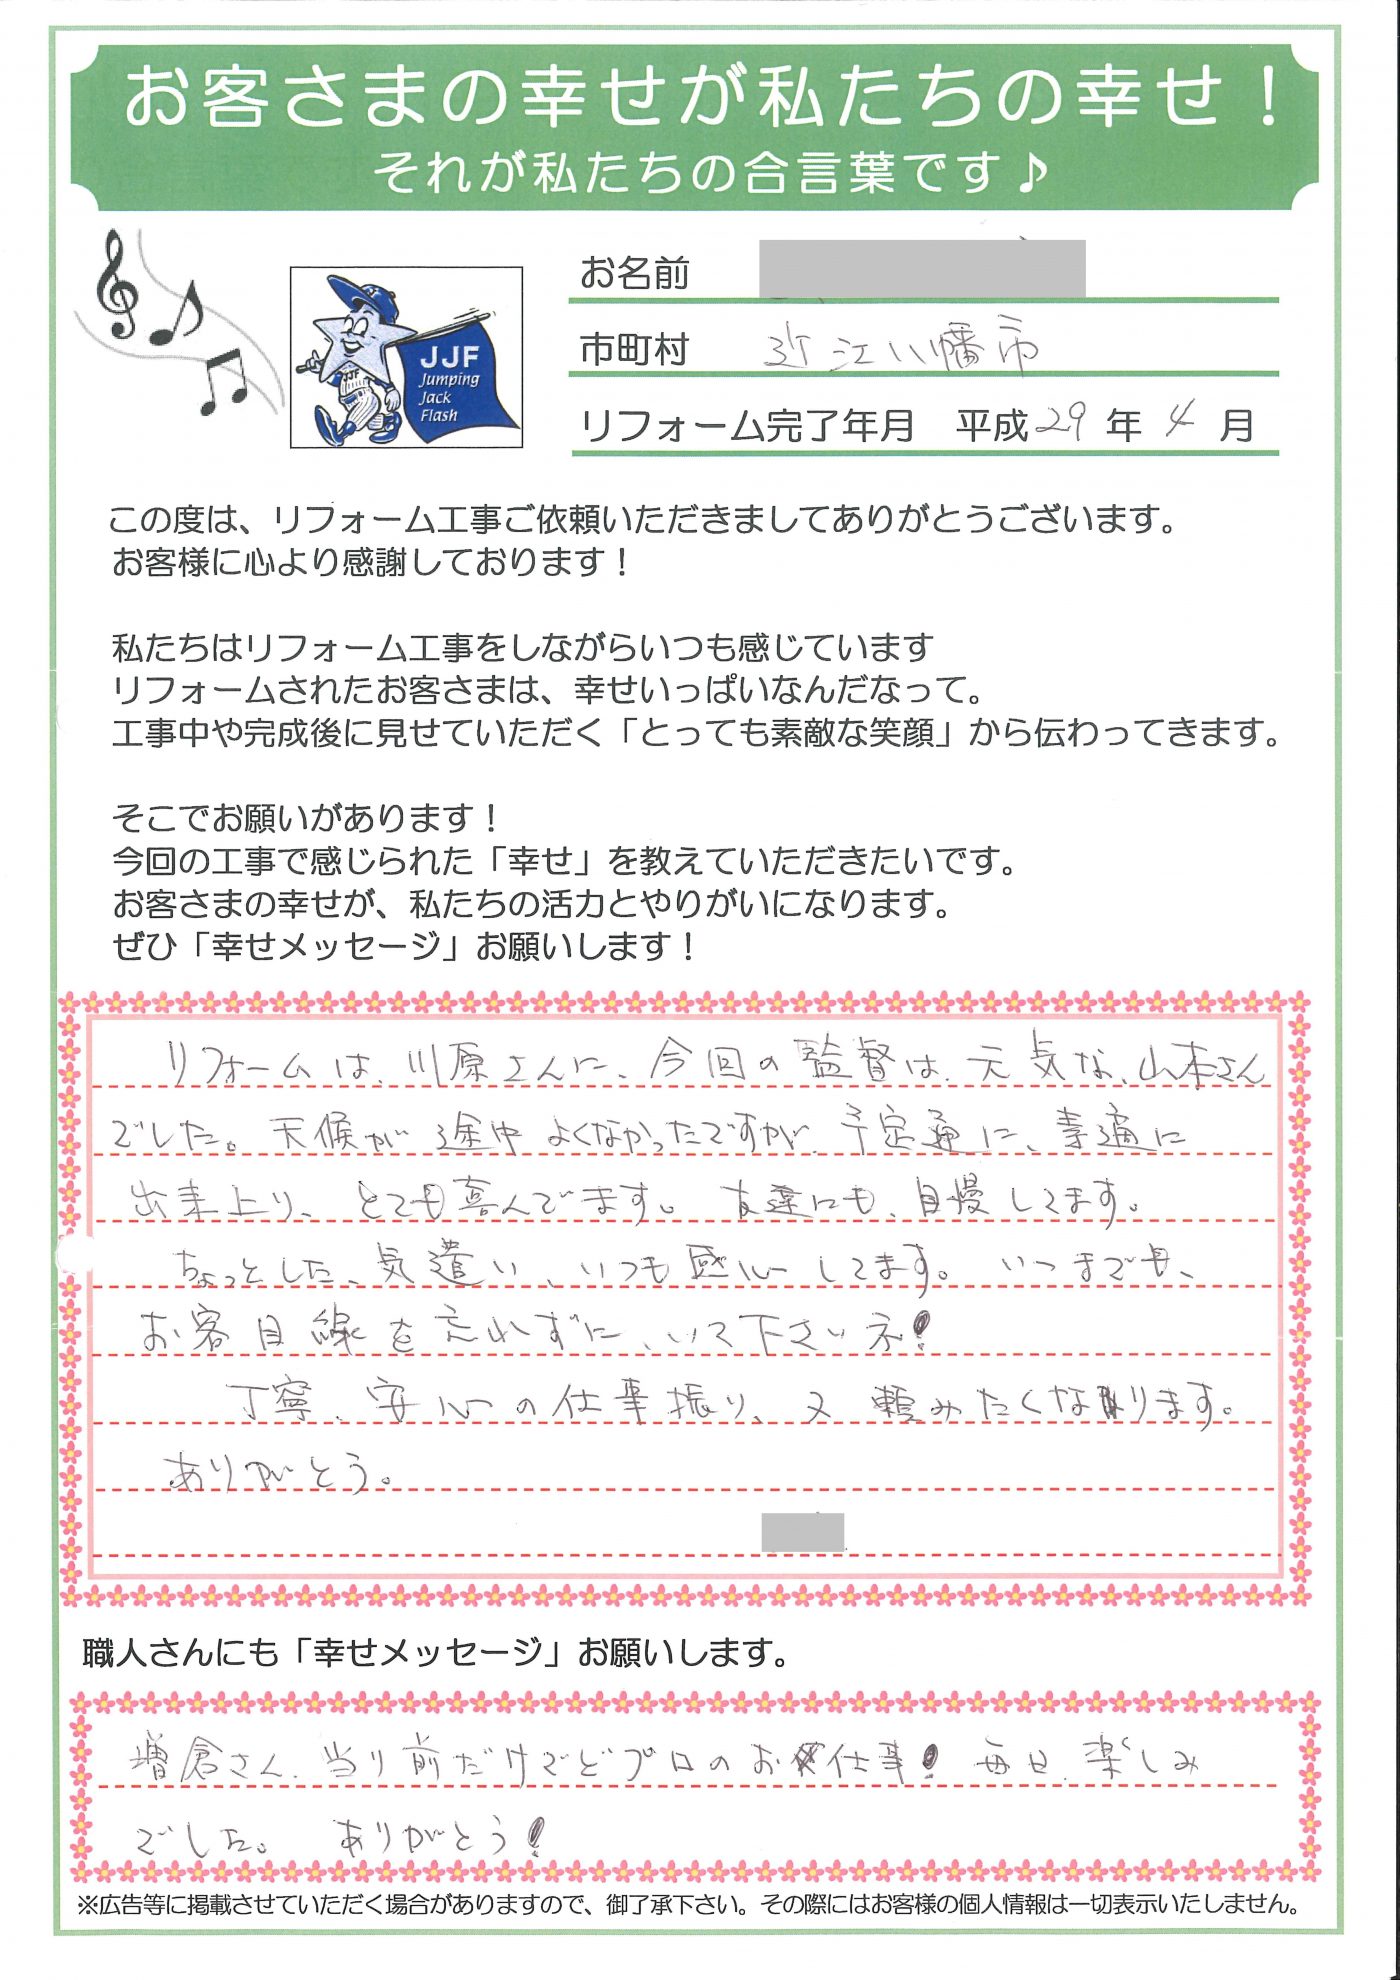 お客さまの幸せが私たちの幸せ！
それが私たちの合言葉です♪
お名前
市町村 近江八幡市
リフォーム完了年月 平成29年4月
JJF
Jumping
Jack
Flash
JJF
この度は、リフォーム工事ご依頼いただきましてありがとうございます。
お客様に心より感謝しております！
私たちはリフォーム工事をしながらいつも感じています
リフォームされたお客さまは、幸せいっぱいなんだなって。
工事中や完成後に見せていただく「とっても素敵な笑顔」から伝わってきます。
そこでお願いがあります！
今回の工事で感じられた「幸せ」を教えていただきたいです。
お客さまの幸せが、私たちの活力とやりがいになります。
ぜひ「幸せメッセージ」お願いします！
リフォームは、川原さんに、今回の監督は、元気な、山本さん
でした。天候が途中よくなかったですが、予定通に、素適に
出来上り、とても喜んでます。友達にも、自慢してます。
ちょっとした、気遣い、いつも感心してます。いつまでも、
お客目線を忘れずに、いて下さいネ！
丁寧、安心の仕事振り、又頼みたくなります。
ありがとう。
職人さんにも「幸せメッセージ」お願いします。
増倉さん、当り前だけでどプロのお仕事！毎日、楽しみ
でした。ありがとう！
※広告等に掲載させていただく場合がありますので、御了承下さい。その際にはお客様の個人情報は一切表示いたしません。